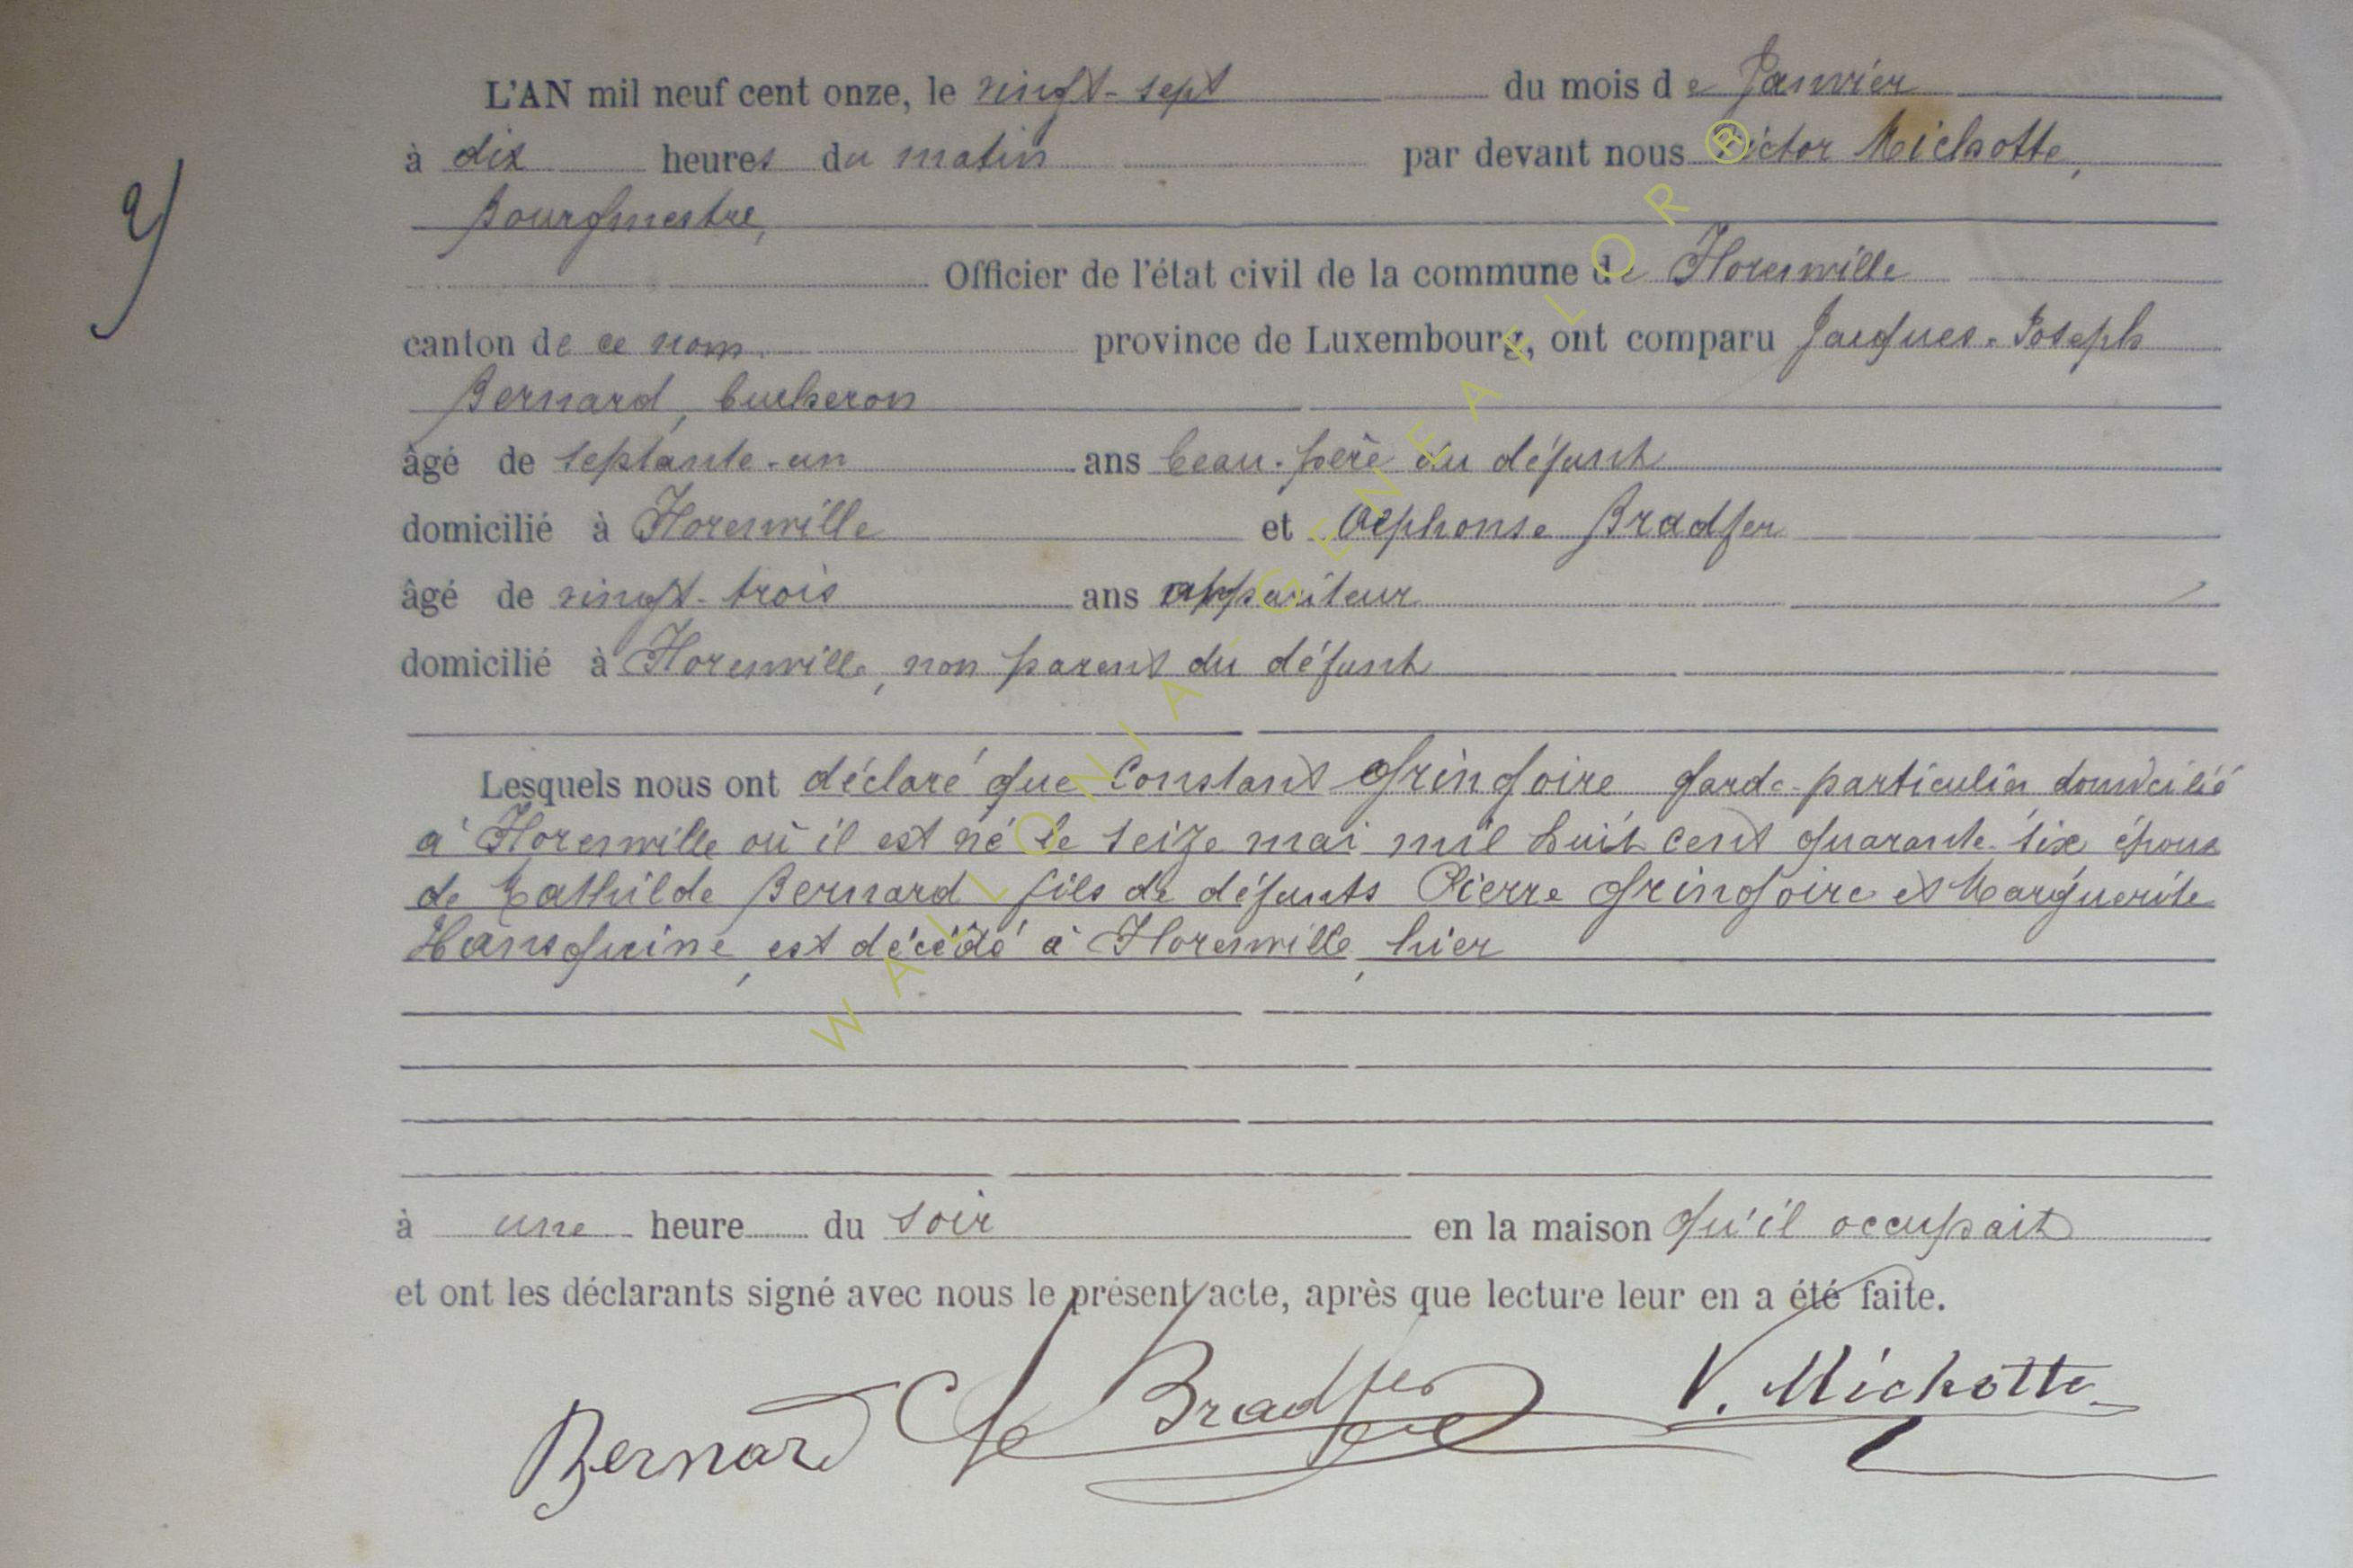 L'AN mil neuf cent onze, le vingt-sept du mois de Janvier
à dix heures du matin par devant nous Victor Michotte,
Bourgmestre,
Officier de l'état civil de la commune de Florenville
canton de ce nom. province de Luxembourg, ont comparu Jacques-Joseph
Bernard, bucheron
âgé de septante-un ans beau-père du défunt
domicilié à Florenville et Alphonse Bradfer
âgé de vingt-trois ans appariteur
domicilié à Florenville, non parent du défunt
Lesquels nous ont déclaré que Constant Gringoire garde-particulier domicilié
à Florenville où il est né le seize mai mil huit cent quarante-six époux
de Mathilde Bernard fils de défunts Pierre Gringoire et Marguerite
Hansquine, est décédé à Florenville, hier
à une heure du soir en la maison qu'il occupait
et ont les déclarants signé avec nous le présent acte, après que lecture leur en a été faite.
Bernard Bradfer V. Michotte
WALLONIA GENEAFLOR ®